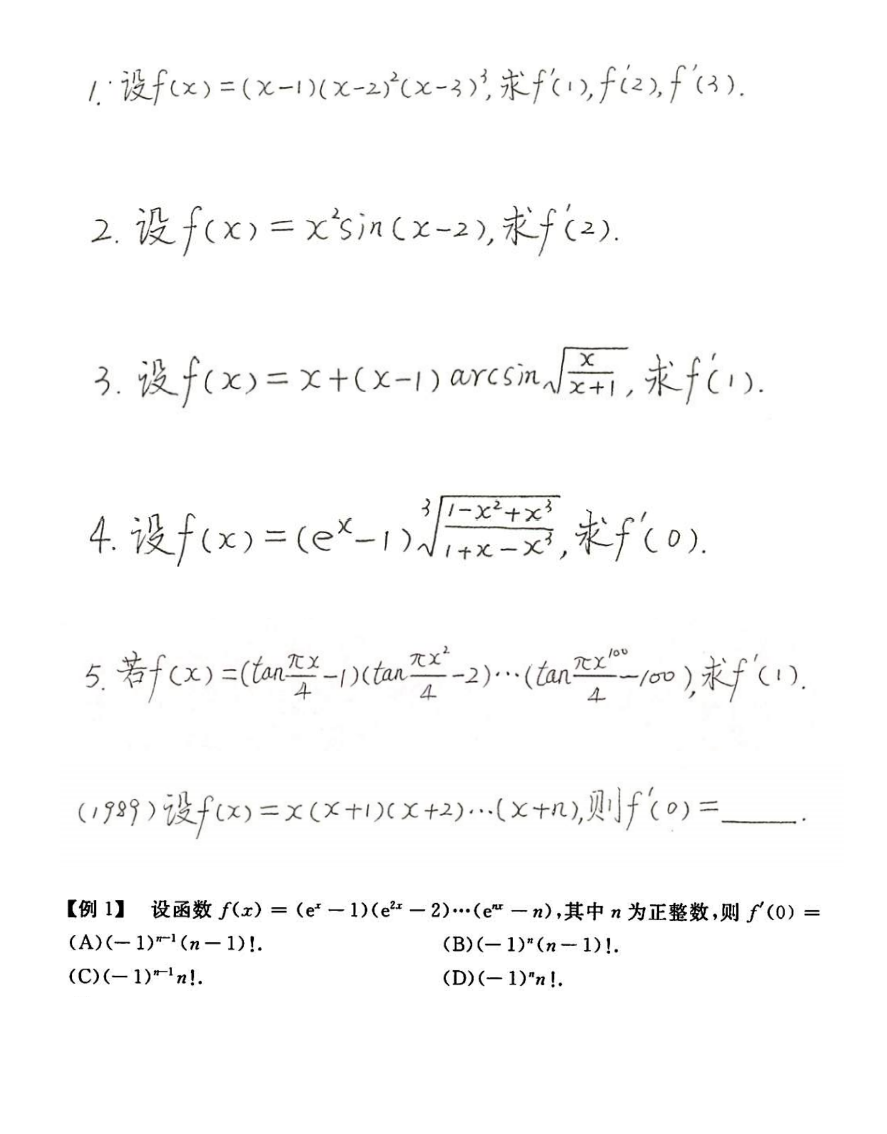 1. 设f(x)=(x-1)(x-2)²(x-3)³,求f′(1),f′(2),f′(3).
2. 设f(x)=x²sin(x-2),求f′(2).
3. 设f(x)=x+(x-1)arcsin√(x/(x+1)),求f′(1).
4. 设f(x)=(eˣ-1)∛((1-x²+x³)/(1+x-x³)),求f′(0).
5. 若f(x)=(tan(πx/4)-1)(tan(πx²/4)-2)…(tan(πx¹⁰⁰/4)-100),求f′(1).
(1989)设f(x)=x(x+1)(x+2)…(x+n),则f′(0)=____.
【例1】 设函数 f(x) = (eˣ - 1)(e²ˣ - 2)…(eⁿˣ - n),其中 n 为正整数,则 f′(0) =
(A)(-1)ⁿ⁻¹(n-1)!. (B)(-1)ⁿ(n-1)!.
(C)(-1)ⁿ⁻¹n!. (D)(-1)ⁿn!.